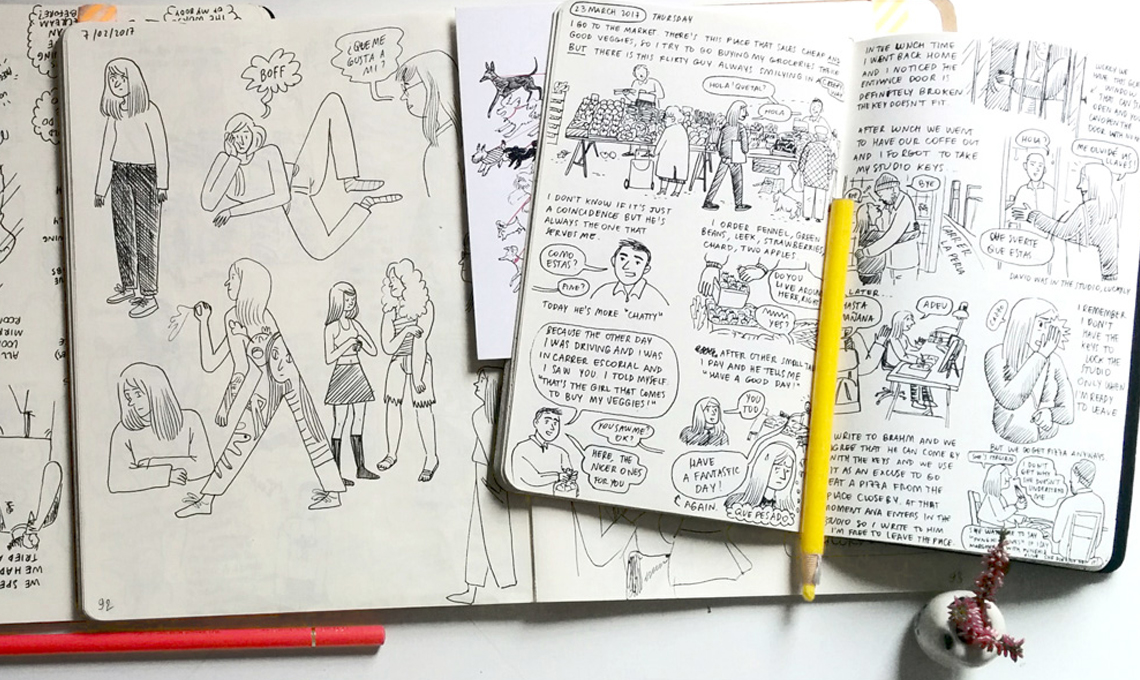 7/02/2017
BOFF
¿QUE ME
GUSTA A
MI?
92
23 MARCH 2017 THURSDAY
I GO TO THE MARKET. THERE'S THIS PLACE THAT SALES CHEAP AND
GOOD VEGGIES, SO I TRY TO GO BUYING MY GROCERIES THERE
BUT THERE IS THIS FLIRTY GUY ALWAYS SMILYING IN A
HOLA! QUETAL?
HOLA
I DON'T KNOW IF IT'S JUST
A COINCIDENCE BUT HE'S
ALWAYS THE ONE THAT
SERVES ME.
I ORDER FENNEL, GREEN
BEANS, LEEK, STRAWBERRIES
CHARD, TWO APPLES.
COMO
ESTAS?
FINE?
DO YOU
LIVE AROUND
HERE, RIGHT
MMM
YES?
TODAY HE'S MORE "CHATTY"
BECAUSE THE OTHER DAY
I WAS DRIVING AND I WAS
IN CARRER ESCORIAL AND
I SAW YOU. I TOLD MYSELF:
"THAT'S THE GIRL THAT COMES
TO BUY MY VEGGIES!"
AFTER OTHER SMALL TALK
I PAY AND HE TELLS ME
"HAVE A GOOD DAY!"
YOU
TOO
YOU SAW ME?
OK?
HERE, THE
NICER ONES
FOR YOU
HAVE
A FANTASTIC
DAY!
AGAIN.
¡QUE PESADO!
IN THE LUNCH TIME
I WENT BACK HOME
AND I NOTICED THE
ENTRANCE DOOR IS
DEFINITELY BROKEN
THE KEY DOESN'T FIT.
AFTER LUNCH WE WENT
TO HAVE OUR COFFE OUT
AND I FORGOT TO TAKE
MY STUDIO KEYS...
BYE
CARRER
LA PERLA
HOLA?
ME OLVIDÉ LAS
LLAVES!
QUE SUERTE
QUE ESTAS
DAVID WAS IN THE STUDIO, LUCKILY
LATER...
HASTA
MAÑANA
ADEU
I REMEMBER
I DON'T
HAVE THE
KEYS TO
LOCK THE
STUDIO
ONLY WHEN
I'M READY
TO LEAVE
WRITE TO BRAHM AND WE
AGREE THAT HE CAN COME BY
WITH THE KEYS AND WE USE
IT AS AN EXCUSE TO GO
EAT A PIZZA FROM THE
PLACE CLOSE BY. AT THAT
MOMENT ANA ENTERS IN THE
STUDIO SO I WRITE TO HIM
I'M FREE TO LEAVE THE PLACE.
BUT WE DO GET PIZZA ANYWAYS
I DON'T
GET WHY
SHE DOESN'T
UNDERSTAND
ME
93